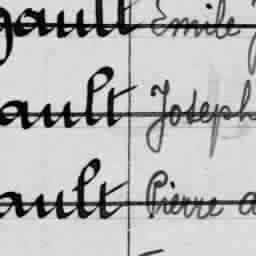 gault Emile J
ault Joseph
ault Pierre a